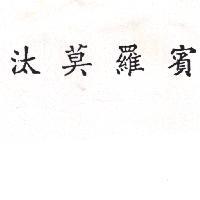 汰莫羅賓